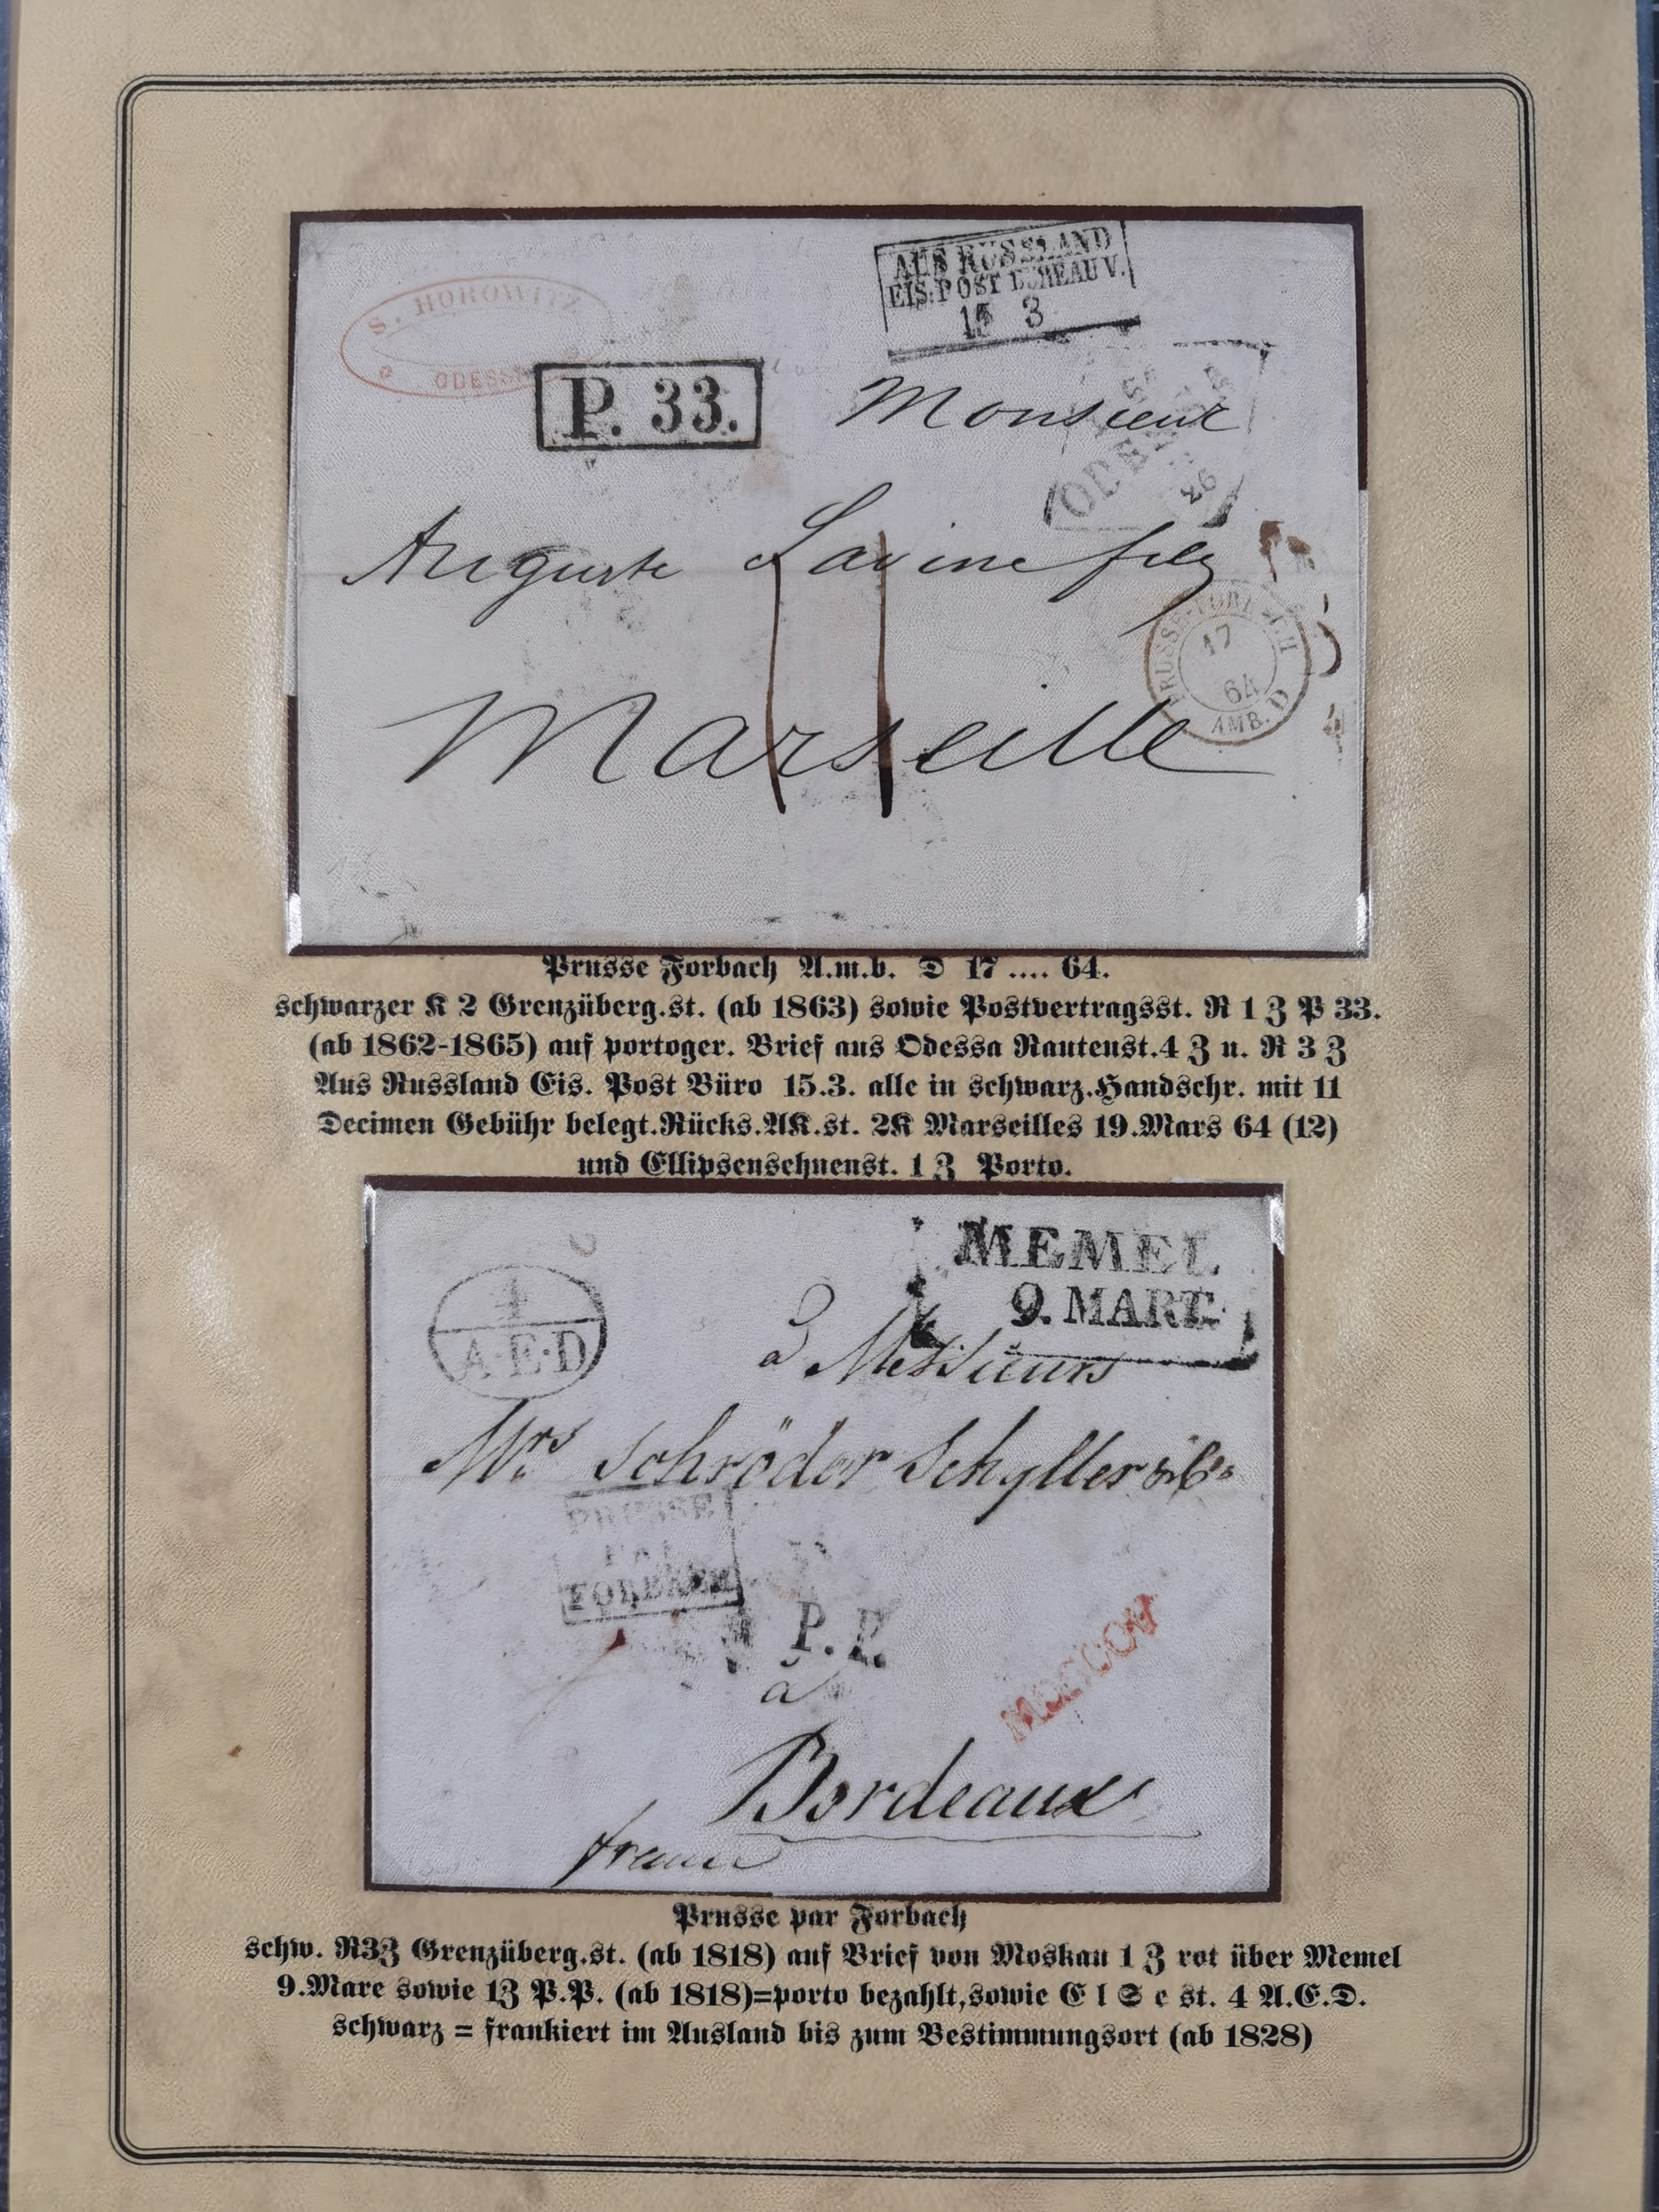 AUS RUSSLAND
EIS. POST BUREAU V.
15 3
S. HOROWITZ
ODESSA
P. 33.
Monsieur
26
Auguste Lavine fils
11
PRUSSE FORBACH
17
64
AMB. D
Marseille
Prusse Forbach A.m.b. D 17 .... 64.
schwarzer K 2 Grenzüberg.st. (ab 1863) sowie Postvertragsst. R 1 Z P 33.
(ab 1862-1865) auf portoger. Brief aus Odessa Rautenst.4 Z u. R 3 Z
Aus Russland Eis. Post Büro 15.3. alle in schwarz.Handschr. mit 11
Decimen Gebühr belegt.Rücks.AK.st. 2K Marseilles 19.Mars 64 (12)
und Ellipsensehnenst. 1 Z Porto.
MEMEL
9. MART.
4
A.E.D
a Messieurs
Mrs Schröder Schyller & Co
PRUSSE
PAR
FORBACH
P.P.
MOSCOU
a
Bordeaux
france
Prusse par Forbach
schw. R3Z Grenzüberg.st. (ab 1818) auf Brief von Moskau 1 Z rot über Memel
9.Mare sowie 1Z P.P. (ab 1818)=porto bezahlt,sowie E l S e st. 4 A.E.D.
schwarz = frankiert im Ausland bis zum Bestimmungsort (ab 1828)